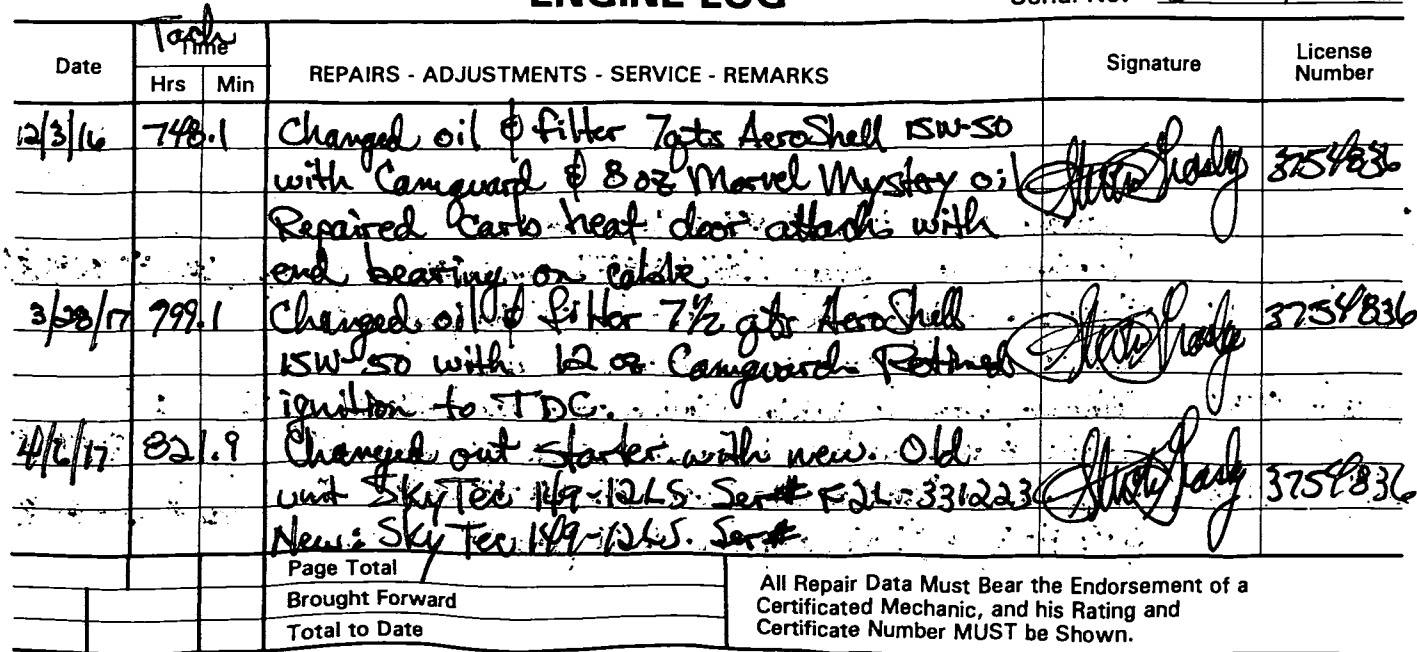 ENGINE LOG
Serial No.
Tach
Date Time Hrs Min REPAIRS - ADJUSTMENTS - SERVICE - REMARKS Signature License Number
12/3/16 748.1 Changed oil & filter 7qts AeroShell 15W-50
with Camguard & 8 oz Marvel Mystery oil 3754836
Repaired Carb heat door attach with
end bearing on cable
3/28/17 799.1 Changed oil & filter 7 1/2 qts AeroShell 3754836
15W-50 with 12 oz Camguard. Retimed
ignition to TDC.
4/6/17 821.9 Changed out starter with new. Old
unit SkyTec 149-12LS Ser# F2L-331223 3754836
New: SkyTec 149-12LS. Ser#
Page Total
Brought Forward
Total to Date
All Repair Data Must Bear the Endorsement of a
Certificated Mechanic, and his Rating and
Certificate Number MUST be Shown.